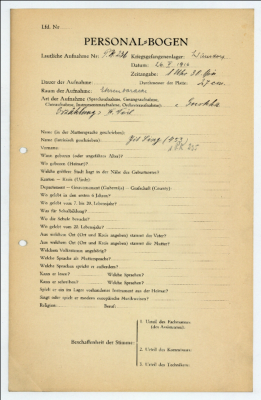 Lfd. Nr.
PERSONAL-BOGEN
Lautliche Aufnahme Nr.: Kriegsgefangenenlager:
Datum:
Zeitangabe: 1 Uhr 30 Min
Dauer der Aufnahme: Durchmesser der Platte: 27 cm
Raum der Aufnahme:
Art der Aufnahme (Sprechaufnahme, Gesangsaufnahme,
Choraufnahme, Instrumentenaufnahme, Orchesteraufnahme):
Erzählung:
Name (in der Muttersprache geschrieben):
Name (lateinisch geschrieben):
Vorname:
Wann geboren (oder ungefähres Alter)?
Wo geboren (Heimat)?
Welche größere Stadt liegt in der Nähe des Geburtsortes?
Kanton — Kreis (Ujezd):
Departement — Gouvernement (Gubernija) — Grafschaft (County):
Wo gelebt in den ersten 6 Jahren?
Wo gelebt vom 7. bis 20. Lebensjahr?
Was für Schulbildung?
Wo die Schule besucht?
Wo gelebt vom 20. Lebensjahr?
Aus welchem Ort (Ort und Kreis angeben) stammt der Vater?
Aus welchem Ort (Ort und Kreis angeben) stammt die Mutter?
Welchem Volksstamm angehörig?
Welche Sprache als Muttersprache?
Welche Sprachen spricht er außerdem?
Kann er lesen? Welche Sprachen?
Kann er schreiben? Welche Sprachen?
Spielt er ein im Lager vorhandenes Instrument aus der Heimat?
Singt oder spielt er modern europäische Musikweisen?
Religion: Beruf:
1. Urteil des Fachmannes
(des Assistenten):
Beschaffenheit der Stimme:
2. Urteil des Kommissars:
3. Urteil des Technikers: